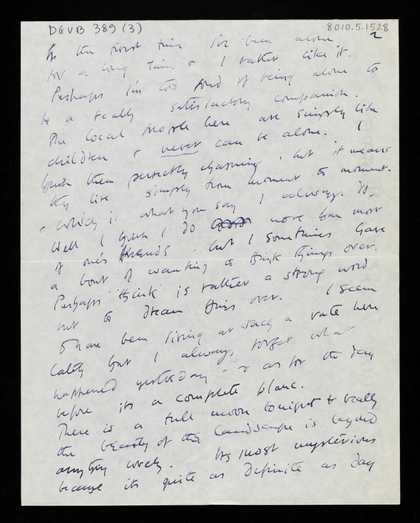 DGVB 389 (3)
8010.5.1528
2
for the first time I've been alone
for a long time & I rather like it.
Perhaps I'm too fond of being alone to
be a really satisfactory companion.
The local people here are simply like
children & never can be alone. I
find them perfectly charming, but it means
they live simply from moment to moment.
- which is what you say I always do.
Well I think I do more than most
of one's friends but I sometimes have
a bout of wanting to think things over.
Perhaps think is rather a strong word
but to dream things over. I seem
to have been living at such a rate here
lately that I always forget what
happened yesterday - & as for the day
before its a complete blank.
There is a full moon tonight & really
the beauty of this landscape is beyond
anything lovely. Its most mysterious
because its quite as definite as day